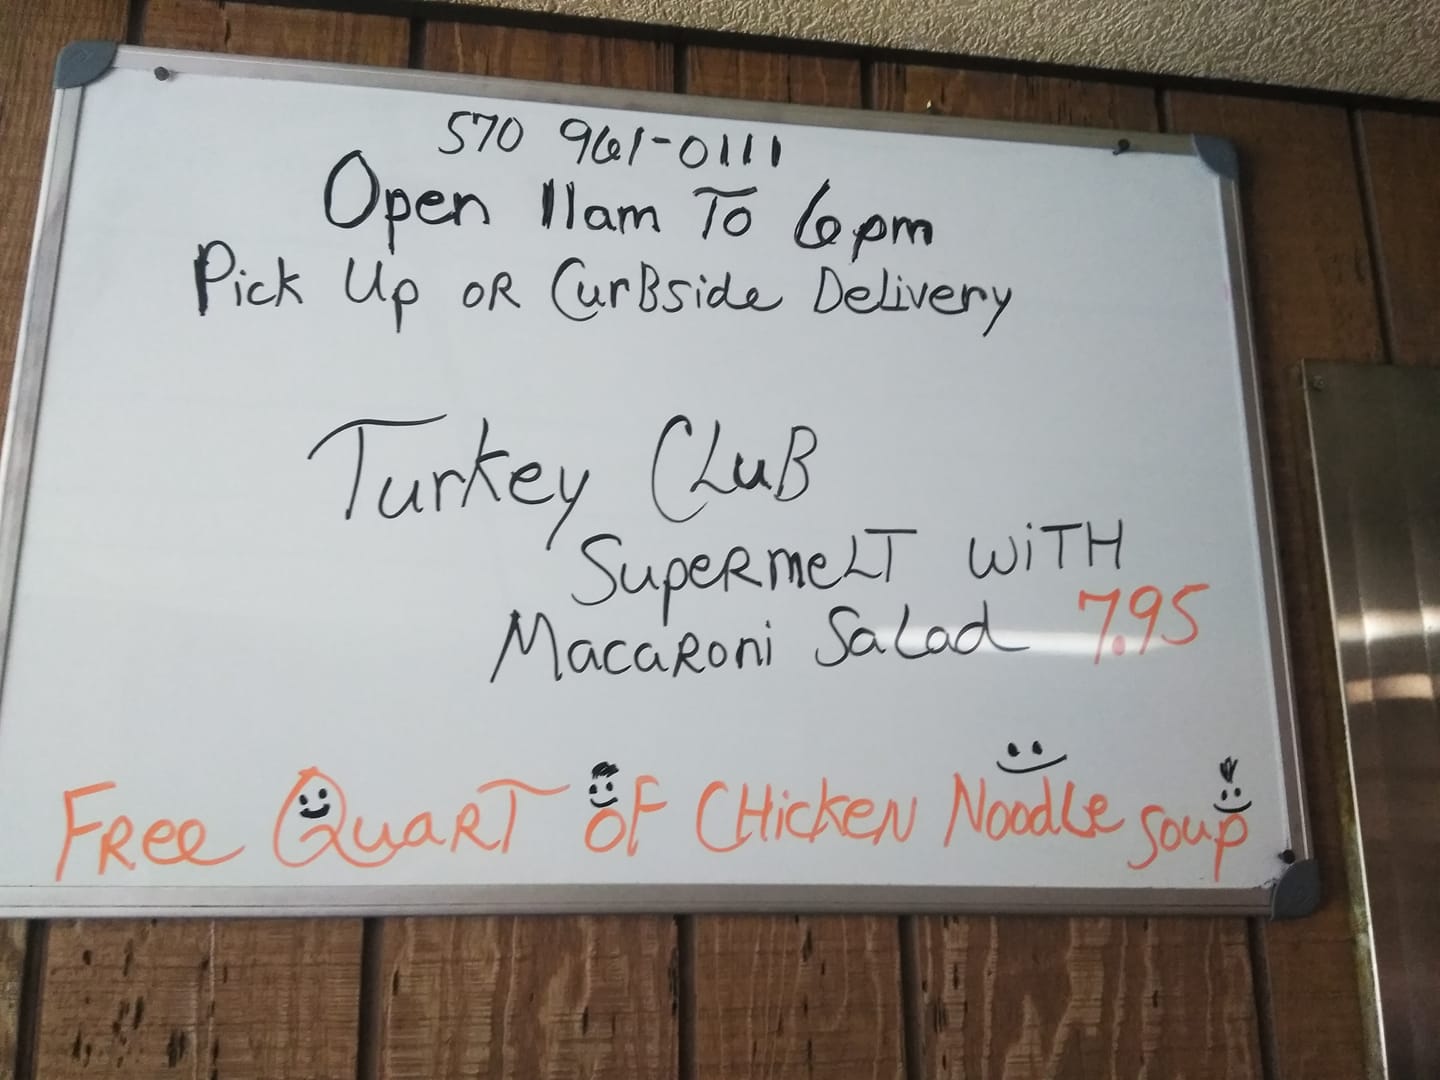 570 961-0111
Open 11am To 6pm
Pick Up OR CurBside Delivery
Turkey CLuB
SupeRmeLT WiTH
MacaRoni SaLad 7.95
FRee QuaRT oF CHicKeN NoodLe soup